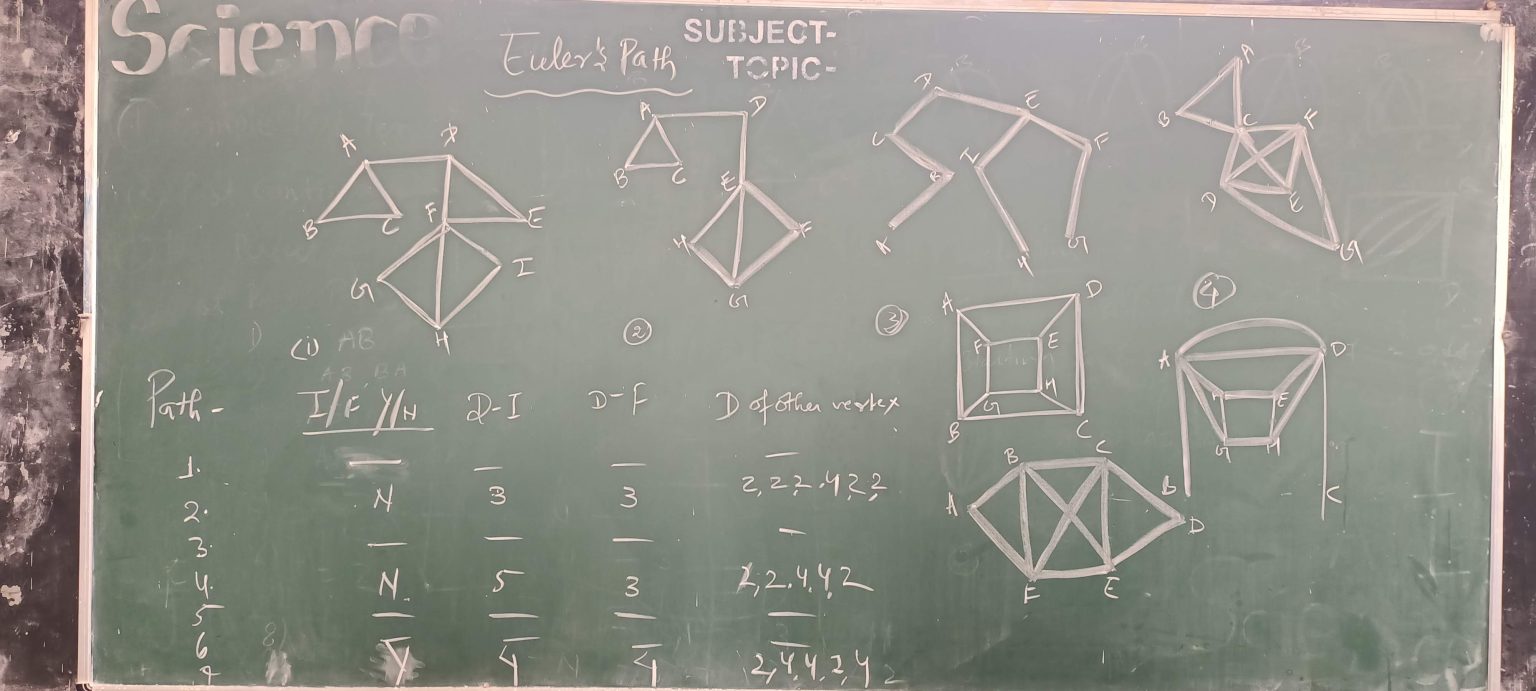 Science
SUBJECT-
TOPIC-
Euler's Path
A D
B C F E
G I
H
(i)
A D
B C E
H F
G
2
D E
C F
B I
A G
H
3
A
B C F
D E
G
4
A D
F E
G H
B C
A D
F E
G H
B C
B C
A D
F E
Path- I/F Y/N D-I D-F D of other vertex
1. — — — —
2. N 3 3 2,2,2,4,2,2
3. — — — —
4. N 5 3 2,2,4,4,2
5 — — — —
6 — — — —
7 Y 4 4 2,4,4,2,4